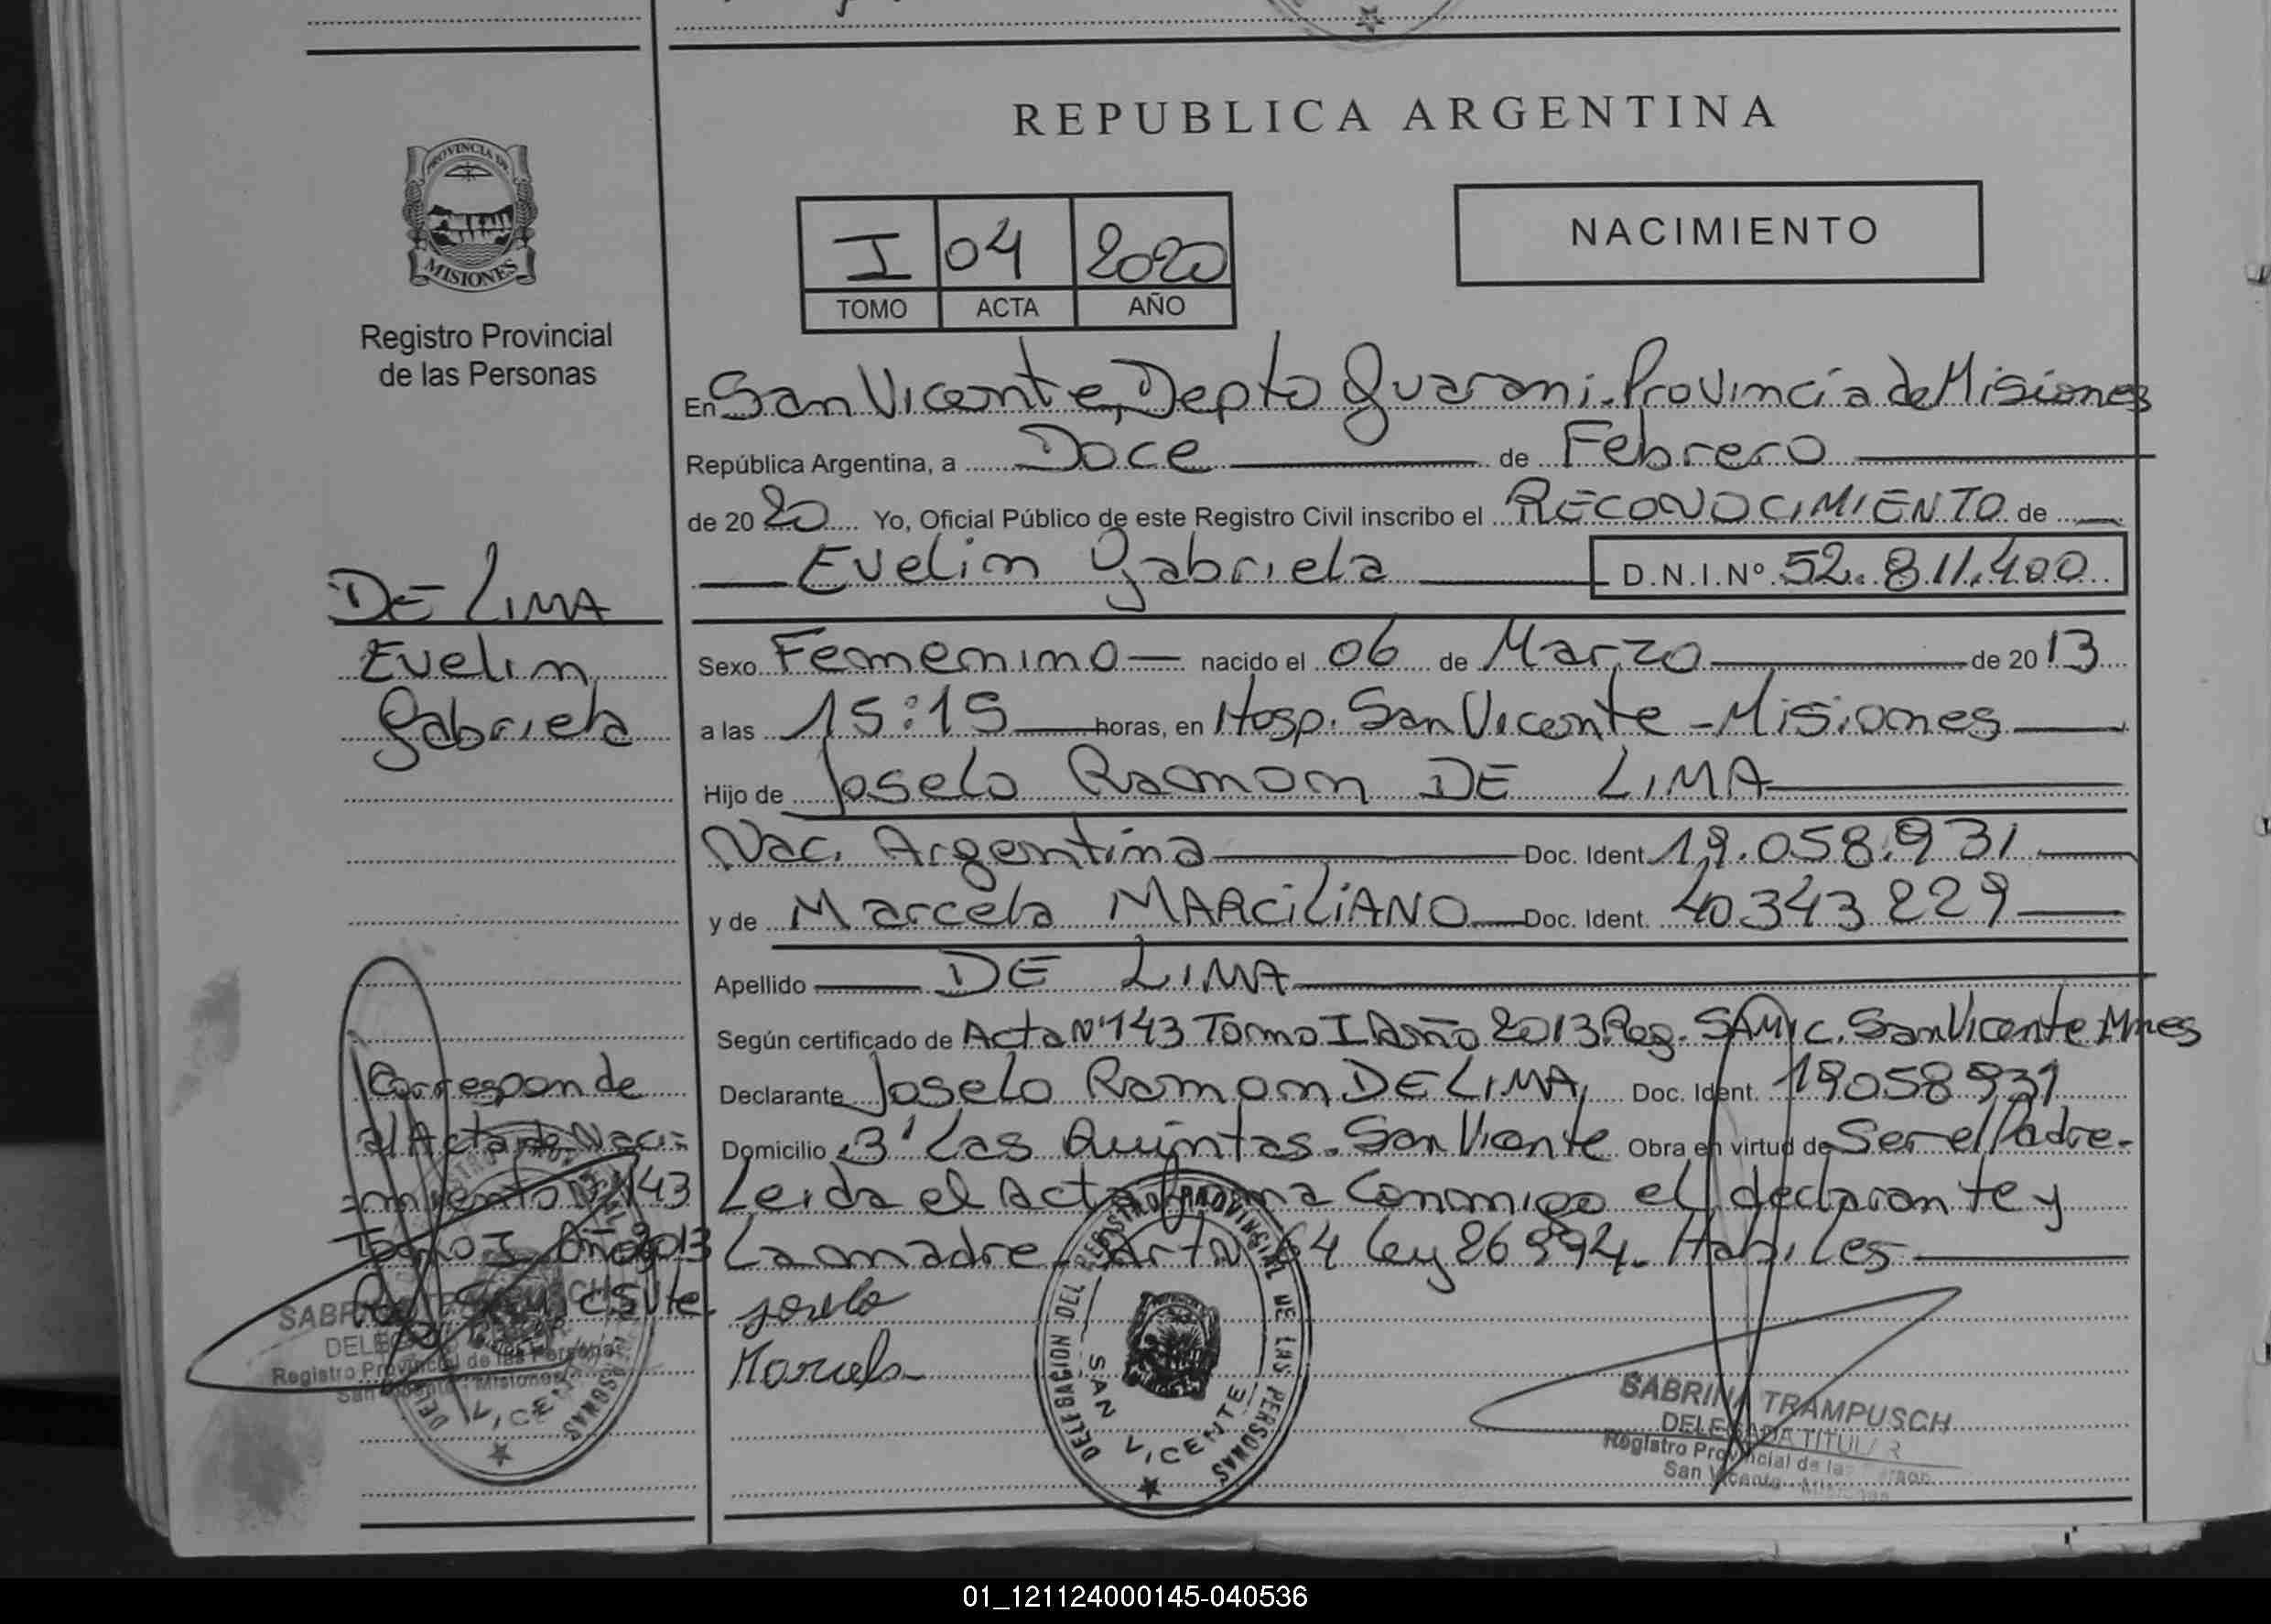 REPUBLICA ARGENTINA
PROVINCIA DE
MISIONES
Registro Provincial
de las Personas
I 04 2020
TOMO ACTA AÑO
NACIMIENTO
En San Vicente, Depto Guarani. Provincia de Misiones
República Argentina, a Doce de Febrero
de 2020 Yo, Oficial Público de este Registro Civil inscribo el RECONOCIMIENTO de
Evelin Gabriela D.N.I.Nº 52.811.400
DE LIMA
Evelin
Gabriela
Sexo Femenino nacido el 06 de Marzo de 2013
a las 15:15 horas, en Hosp. San Vicente - Misiones
Hijo de Joselo Ramon DE LIMA
Nac. Argentina Doc. Ident. 19.058.931
y de Marcela MARCiLiANO Doc. Ident. 40.343.229
Apellido DE LIMA
Según certificado de Acta Nº 143 Tomo I Año 2013 Reg. SAMIC. San Vicente Mnes
Declarante Joselo Ramon DE LIMA Doc. Ident. 19058931
Domicilio Bº Las Quintas. San Vicente Obra en virtud de Ser el Padre.
Leida el Acta firma Conmigo el declarante y
La madre. Art Nº 64 Ley 26994. Habiles
Corresponde
al Acta de Naci=
=miento Nº 143
Tomo I Año 2013
Joselo
Marcela
DELEGACION DEL REGISTRO PROVINCIAL DE LAS PERSONAS
SAN VICENTE
SABRINA TRAMPUSCH
DELEGADA TITULAR
Registro Provincial de las Personas
San Vicente - Misiones
Registro Provincial de las Personas
San Vicente - Misiones
01_121124000145-040536